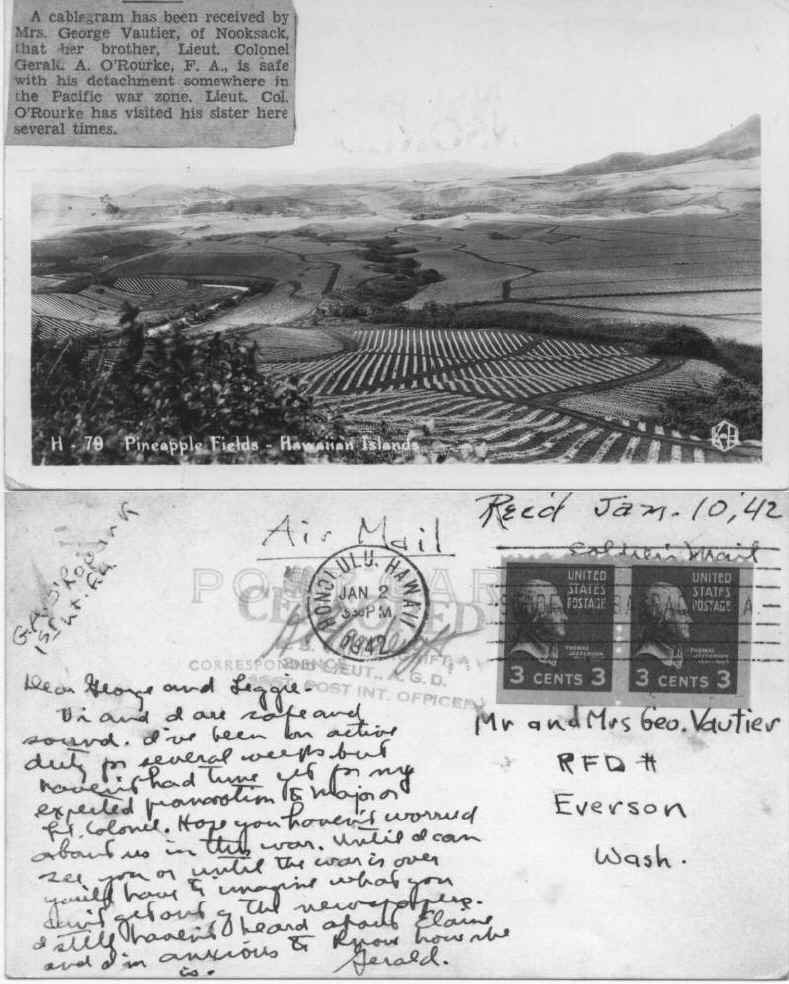 A cablegram has been received by
Mrs. George Vautier, of Nooksack,
that her brother, Lieut. Colonel
Geral. A. O'Rourke, F. A., is safe
with his detachment somewhere in
the Pacific war zone. Lieut. Col.
O'Rourke has visited his sister here
several times.
H - 79 Pineapple Fields - Hawaiian Islands
Rec'd Jan. 10, '42
Air Mail
Soldier's Mail
1st Lt.
POST CARD
CENSORED
HONOLULU. HAWAII
JAN 2
PM
1942
CORRESPONDENCE
LIEUT., A. G. D.
ASST. POST INT. OFFICER
UNITED
STATES
POSTAGE
THOMAS
JEFFERSON
3 CENTS 3
UNITED
STATES
POSTAGE
THOMAS
JEFFERSON
3 CENTS 3
Dear George and Leggie.
Vi and I are safe and
sound. I've been on active
duty for several weeks but
haven't had time yet for my
expected promotion to Major or
Lt. Colonel. Hope you haven't worried
about us in this war. Until I can
see you or until the war is over
you'll have to imagine what you
can't get out of the newspapers.
I still haven't heard about Elaine
and I'm anxious to know how she
is. Gerald.
Mr and Mrs Geo. Vautier
RFD #
Everson
Wash.